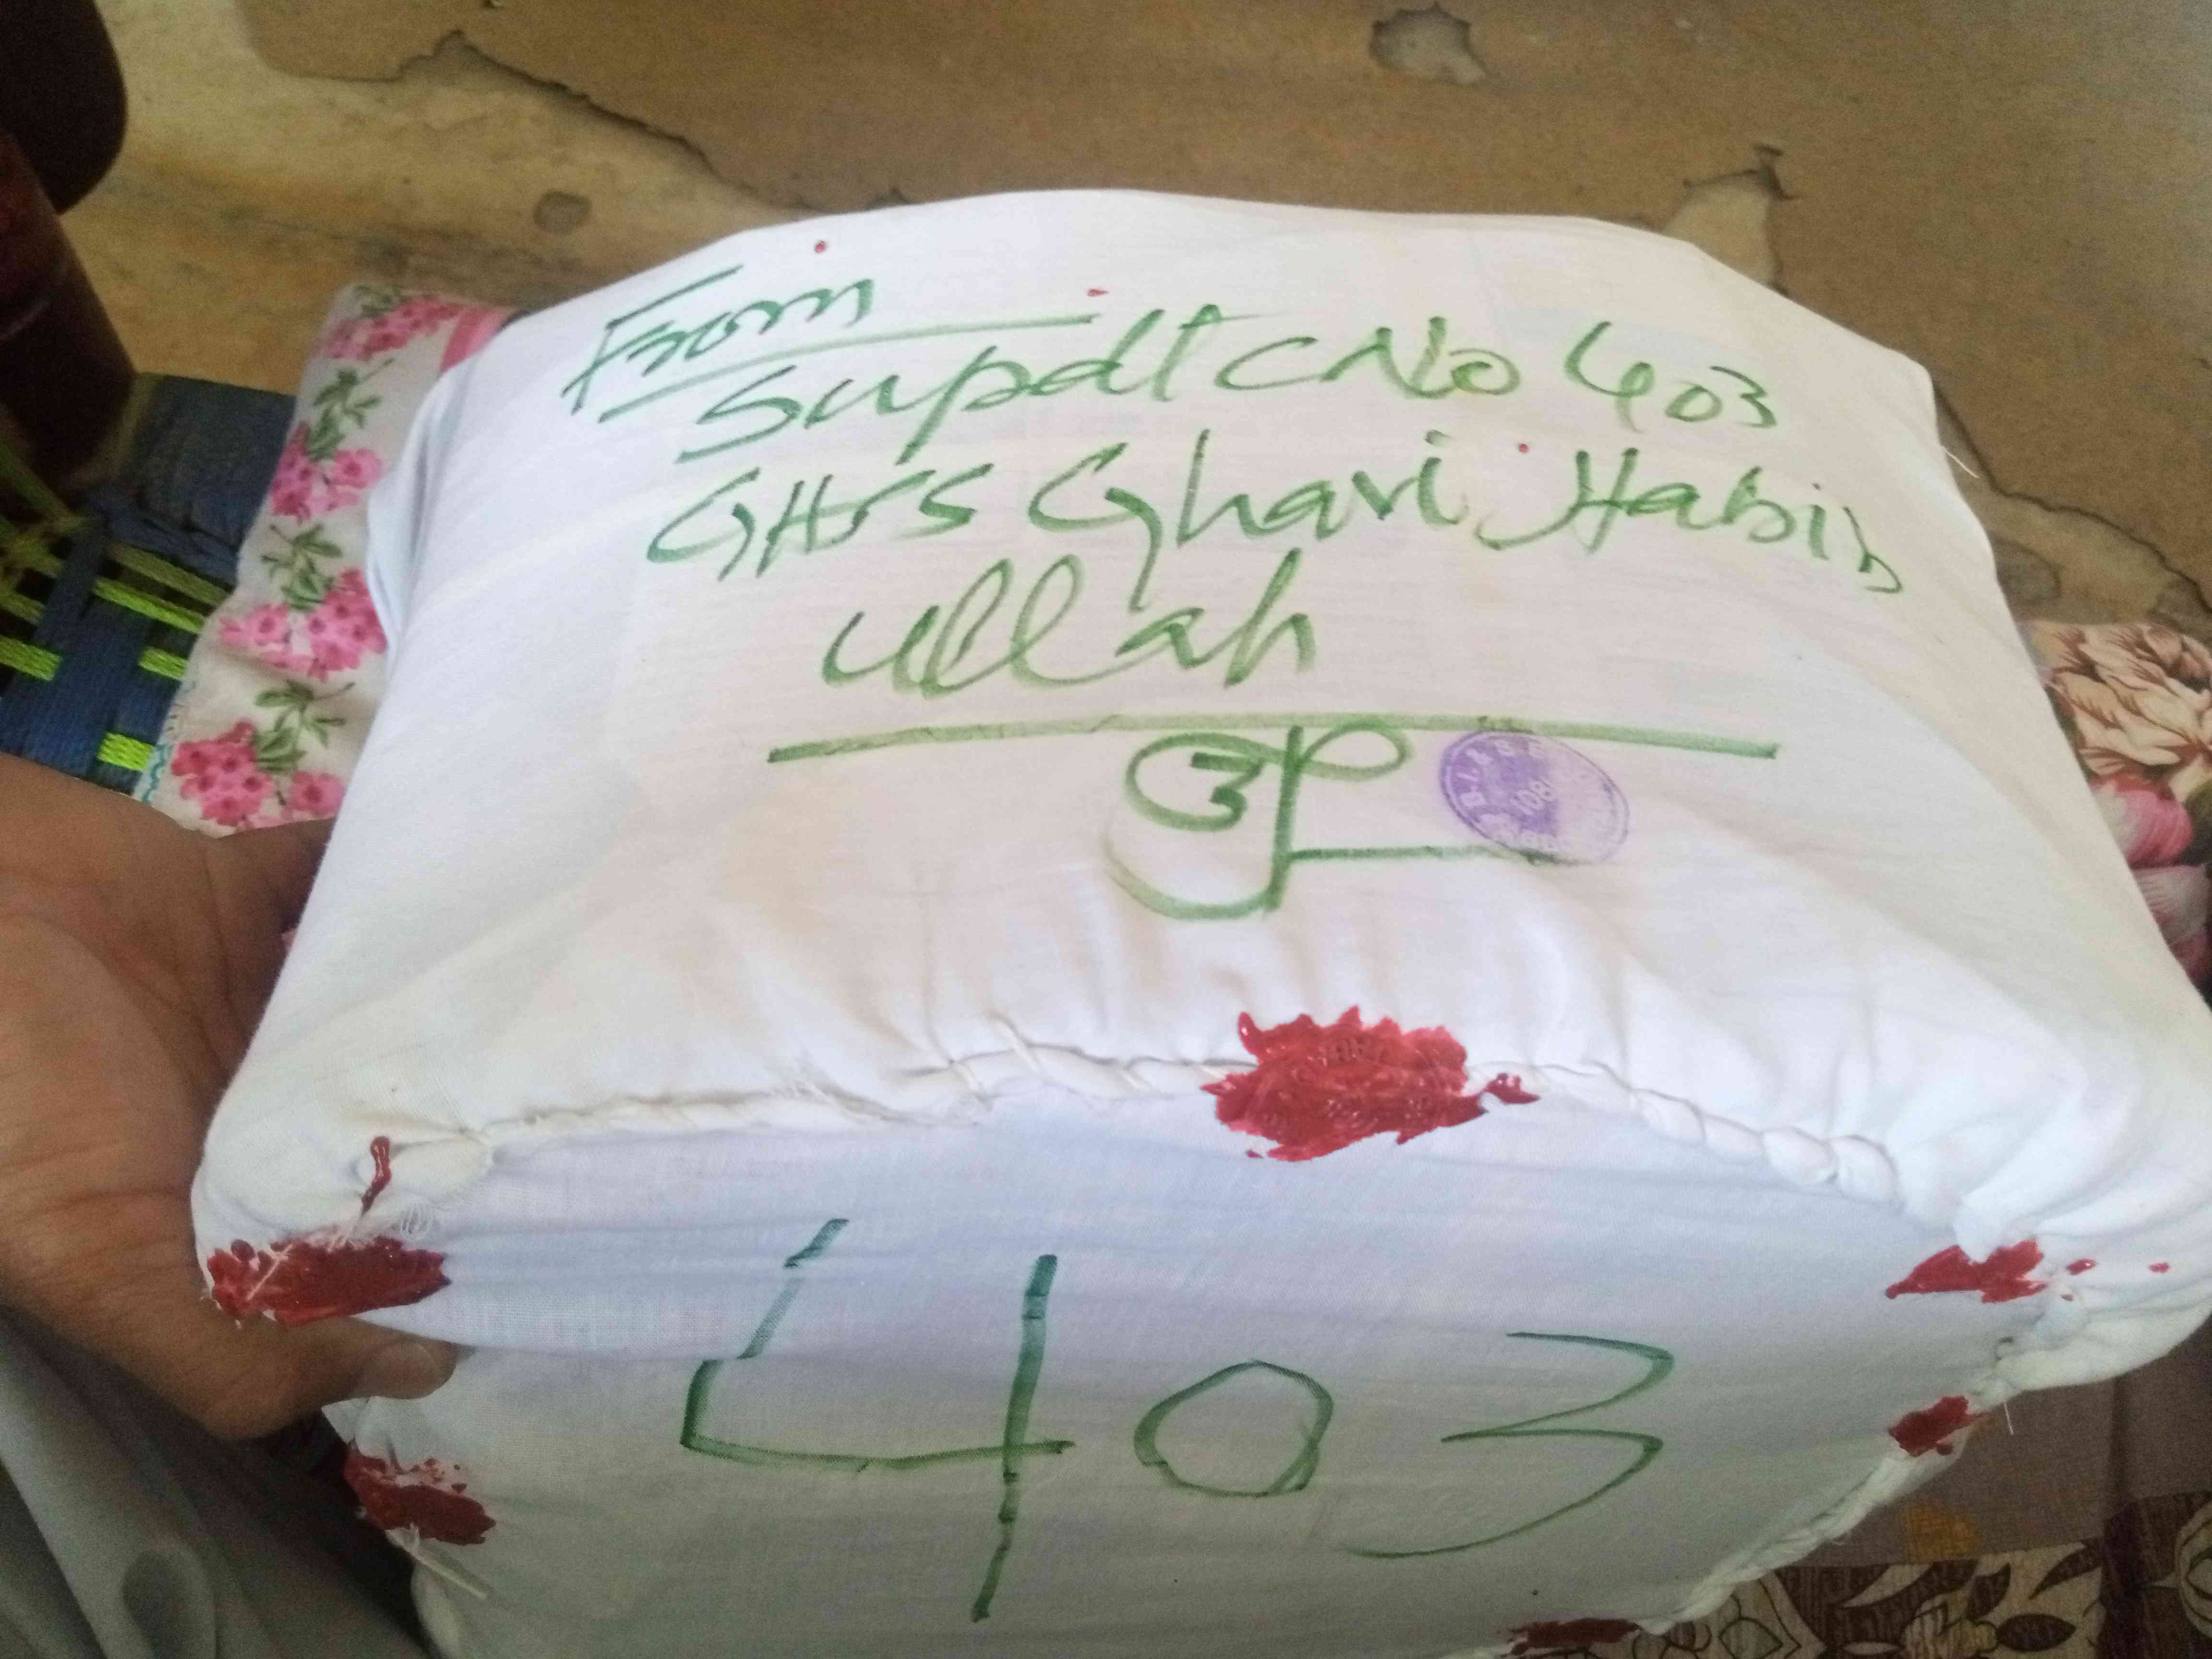 From
Supdt CNo 403
GHSS Ghari Habib
ullah
3
403